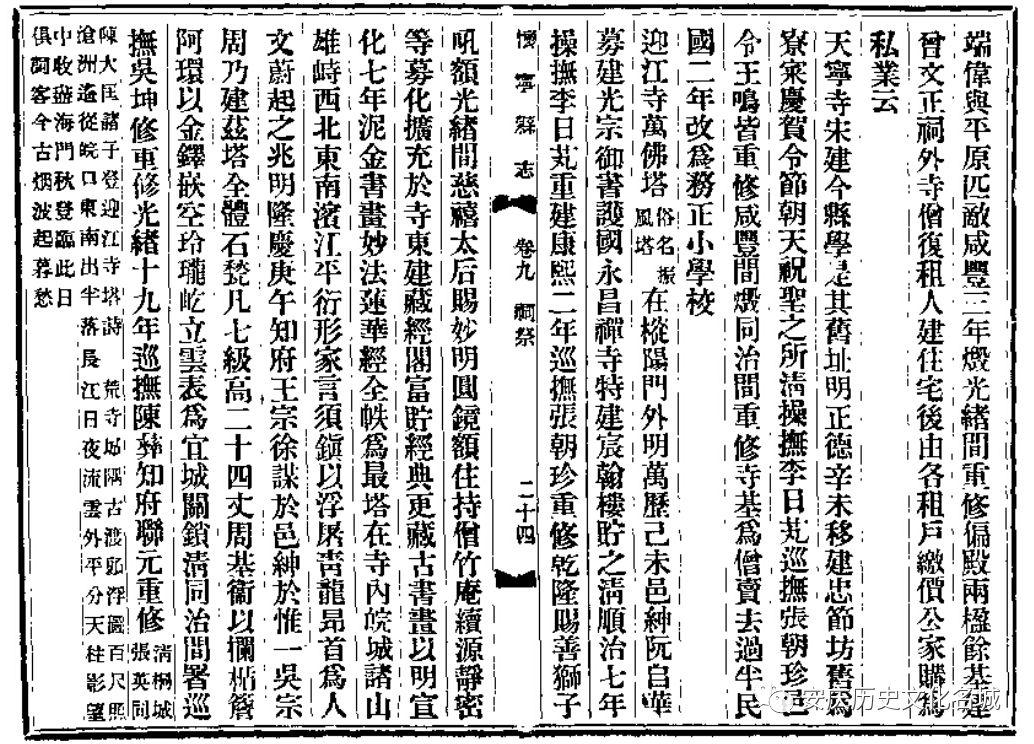 端偉與平原匹敵咸豐三年燬光緒間重修偏殿兩楹餘基建
曾文正祠外寺僧復租人建住宅後由各租戶繳價公家購爲
私業云
天寧寺宋建今縣學是其舊址明正德辛未移建忠節坊舊爲
寮寀慶賀令節朝天祝聖之所淸操撫李日芃巡撫張朝珍邑
令王鳴皆重修咸豐間燬同治間重修寺基爲僧賣去過半民
國二年改爲務正小學校
迎江寺萬佛塔俗名振風塔在樅陽門外明萬歷己未邑紳阮自華
募建光宗御書護國永昌禪寺特建宸翰樓貯之淸順治七年
操撫李日芃重建康熙二年巡撫張朝珍重修乾隆賜善獅子
懷寧縣志 卷九 祠祭 二十四
吼額光緒間慈禧太后賜妙明圓鏡額住持僧竹庵續源靜密
等募化擴充於寺東建藏經閣富貯經典更藏古書畫以明宣
化七年泥金書畫妙法蓮華經全帙爲最塔在寺內皖城諸山
雄峙西北東南濱江平衍形家言須鎭以浮屠靑龍昻首爲人
文蔚起之兆明隆慶庚午知府王宗徐謀於邑紳於惟一吳宗
周乃建茲塔全體石甃凡七級高二十四丈周基衞以欄楯簷
阿環以金鐸嵌空玲瓏屹立雲表爲宜城關鎖淸同治間署巡
撫吳坤修重修光緒十九年巡撫陳彝知府聯元重修淸桐城張英同
陳大匡諸子登迎江寺塔詩 荒寺城隅古渡邱浮圖百尺照
滄洲遙從皖口東南出半落長江日夜流雲外平分天柱影望
中收盡海門秋登臨此日
俱詞客今古烟波起暮愁
安庆历史文化名城